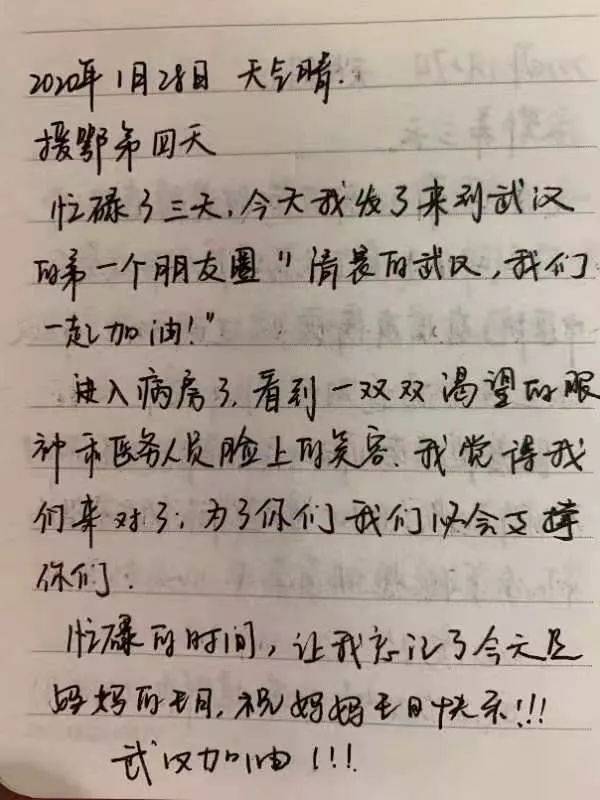 2020年1月28日 天气晴.
援鄂第四天
忙碌了三天,今天我发了来到武汉
的第一个朋友圈"清晨的武汉,我们
一起加油!"
进入病房了,看到一双双渴望的眼
神和医务人员脸上的笑容.我觉得我
们来对了;为了你们我们必会支撑
你们.
忙碌的时间,让我忘记了今天是
妈妈的生日,祝妈妈生日快乐!!!
武汉加油!!!